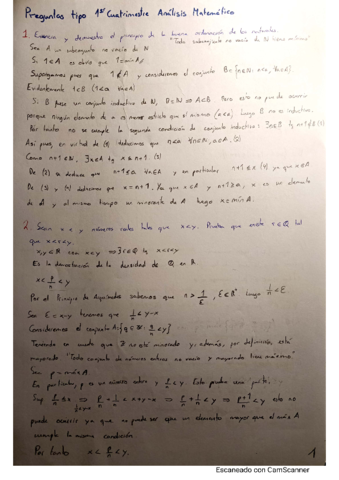 Preguntas tipo 1er Cuatrimestre Análisis Matemático
1. Enuncia y demuestra el principio de la buena ordenación de los naturales.
"Todo subconjunto no vacío de N tiene mínimo"
Sea A un subconjunto no vacío de N
Si 1∈A es obvio que 1=mín A
Supongamos pues que 1∉A y consideremos el conjunto B={n∈N: n<a, ∀a∈A}
Evidentemente 1∈B (1<a ∀a∈A)
Si B fuese un conjunto inductivo de N, B=N ⇒ A⊂B. Pero esto no puede ocurrir
porque ningún elemento de A es menor estricto que él mismo (a<a). Luego B no es inductivo.
Por tanto no se cumple la segunda condición de conjunto inductivo: ∃n∈B tq n+1∉B (1)
Así pues, en virtud de (1) deducimos que n<a ∀a∈A, (2)
Como n+1∉B, ∃a∈A tq a≤n+1. (3)
De (2) se deduce que n+1≤a ∀a∈A y en particular n+1≤ (4) ya que ∈A
De (3) y (4) deducimos que =n+1. Ya que ∈A y n+1≤a, es un elemento
de A y al mismo tiempo un minorante de A luego =mín A.
2. Sean x e y números reales tales que x<y. Prueba que existe r∈Q tal
que x<r<y.
x,y∈R con x<y ⇒∃r∈Q tq x<r<y
Es la demostración de la densidad de Q en R
x<p/n<y
Por el Principio de Arquímedes sabemos que n>1/ε, ε∈R⁺ luego 1/n<ε.
Sea ε=y-x tenemos que 1/n<y-x
Consideremos el conjunto A:{q∈Z: q/n<y}
Teniendo en cuenta que Z no está minorado y, además, por definición, está
mayorado "Todo conjunto de números enteros no vacío y mayorado tiene máximo"
Sea p=máx A
En particular, p es un número entero y p/n<y. Esto prueba una parte.
Sup p/n≤x ⇒ p/n+1/n<x+y-x ⇒ p/n+1/n<y ⇒ p+1/n<y esto no
1/n<y-x
puede ocurrir ya que no puede ser que un elemento mayor que el máx A
cumpla la misma condición
Por tanto x<p/n<y.
1
Escaneado con CamScanner